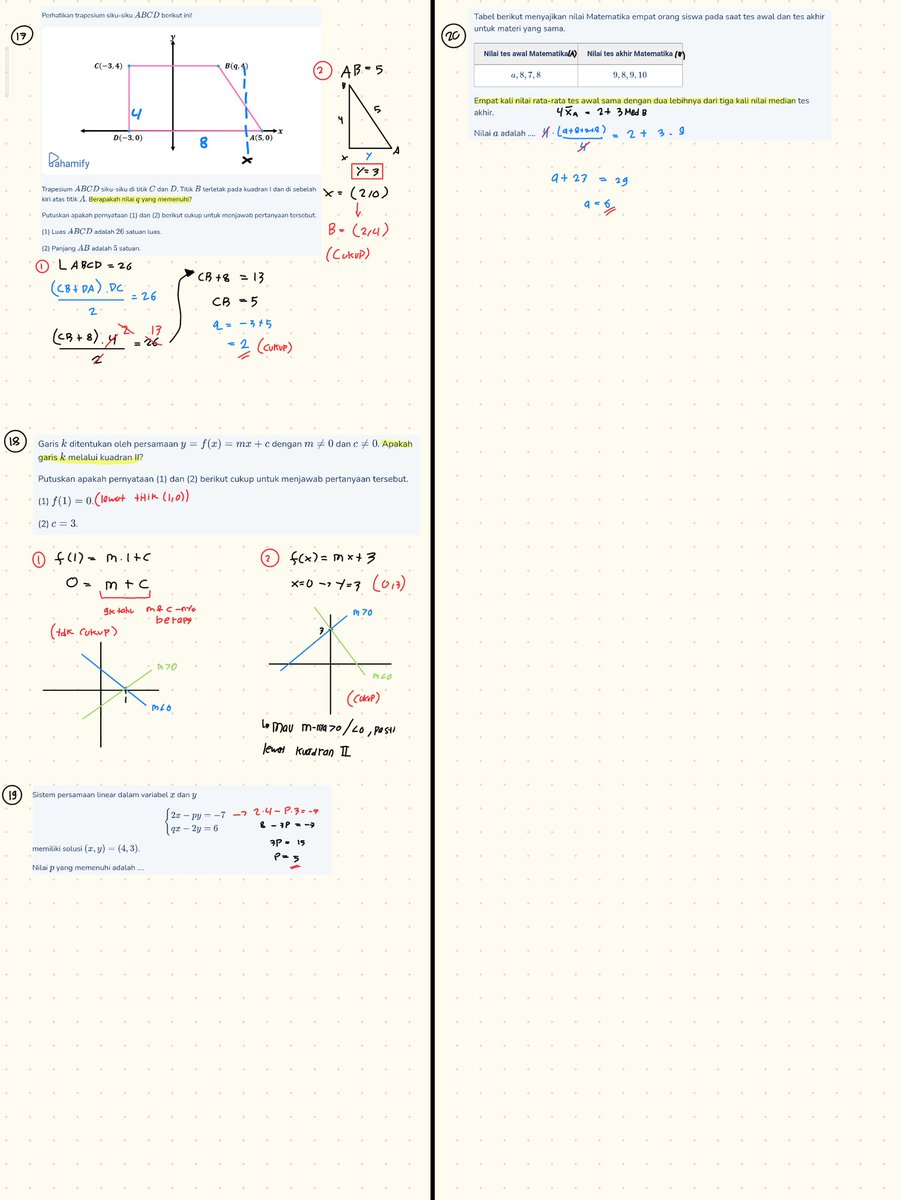 17
Perhatikan trapesium siku-siku ABCD berikut ini!
y
C(−3, 4)
B(q, 4)
4
D(−3, 0)
8
A(5, 0)
x
x
Pahamify
Trapesium ABCD siku-siku di titik C dan D. Titik B terletak pada kuadran I dan di sebelah
kiri atas titik A. Berapakah nilai q yang memenuhi?
Putuskan apakah pernyataan (1) dan (2) berikut cukup untuk menjawab pertanyaan tersebut.
(1) Luas ABCD adalah 26 satuan luas.
(2) Panjang AB adalah 5 satuan.
2 AB = 5
B
4
5
x
y
A
y = 3
x = (2,0)
B = (2,4)
(CUKUP)
1 L ABCD = 26
(CB + DA) . DC / 2 = 26
(CB + 8) . 4 2 / 2 = 26 13
CB + 8 = 13
CB = 5
q = −3+5
= 2 (CUKUP)
18
Garis k ditentukan oleh persamaan y = f(x) = mx + c dengan m ≠ 0 dan c ≠ 0. Apakah
garis k melalui kuadran II?
Putuskan apakah pernyataan (1) dan (2) berikut cukup untuk menjawab pertanyaan tersebut.
(1) f(1) = 0. (lewat titik (1,0))
(2) c = 3.
1 f(1) = m.1+c
0 = m + c
gk tahu m & c -nya
berapa
(tdk cukup)
m>0
1
m<0
2 f(x) = mx + 3
x=0 → y=3 (0,3)
m>0
3
m<0
(CUKUP)
↳ mau m-nya >0 / <0, pasti
lewat kuadran II
19
Sistem persamaan linear dalam variabel x dan y
2x − py = −7 → 2.4 − p.3 = −7
qx − 2y = 6
8 − 3p = −7
3p = 15
p = 5
memiliki solusi (x, y) = (4, 3).
Nilai p yang memenuhi adalah ....
20
Tabel berikut menyajikan nilai Matematika empat orang siswa pada saat tes awal dan tes akhir
untuk materi yang sama.
Nilai tes awal Matematika (A) Nilai tes akhir Matematika (B)
a, 8, 7, 8 9, 8, 9, 10
Empat kali nilai rata-rata tes awal sama dengan dua lebihnya dari tiga kali nilai median tes
akhir.
4 x̄A = 2 + 3 Med B
Nilai a adalah ....
4 . (a+8+7+8) / 4 = 2 + 3 . 9
a + 23 = 29
a = 6